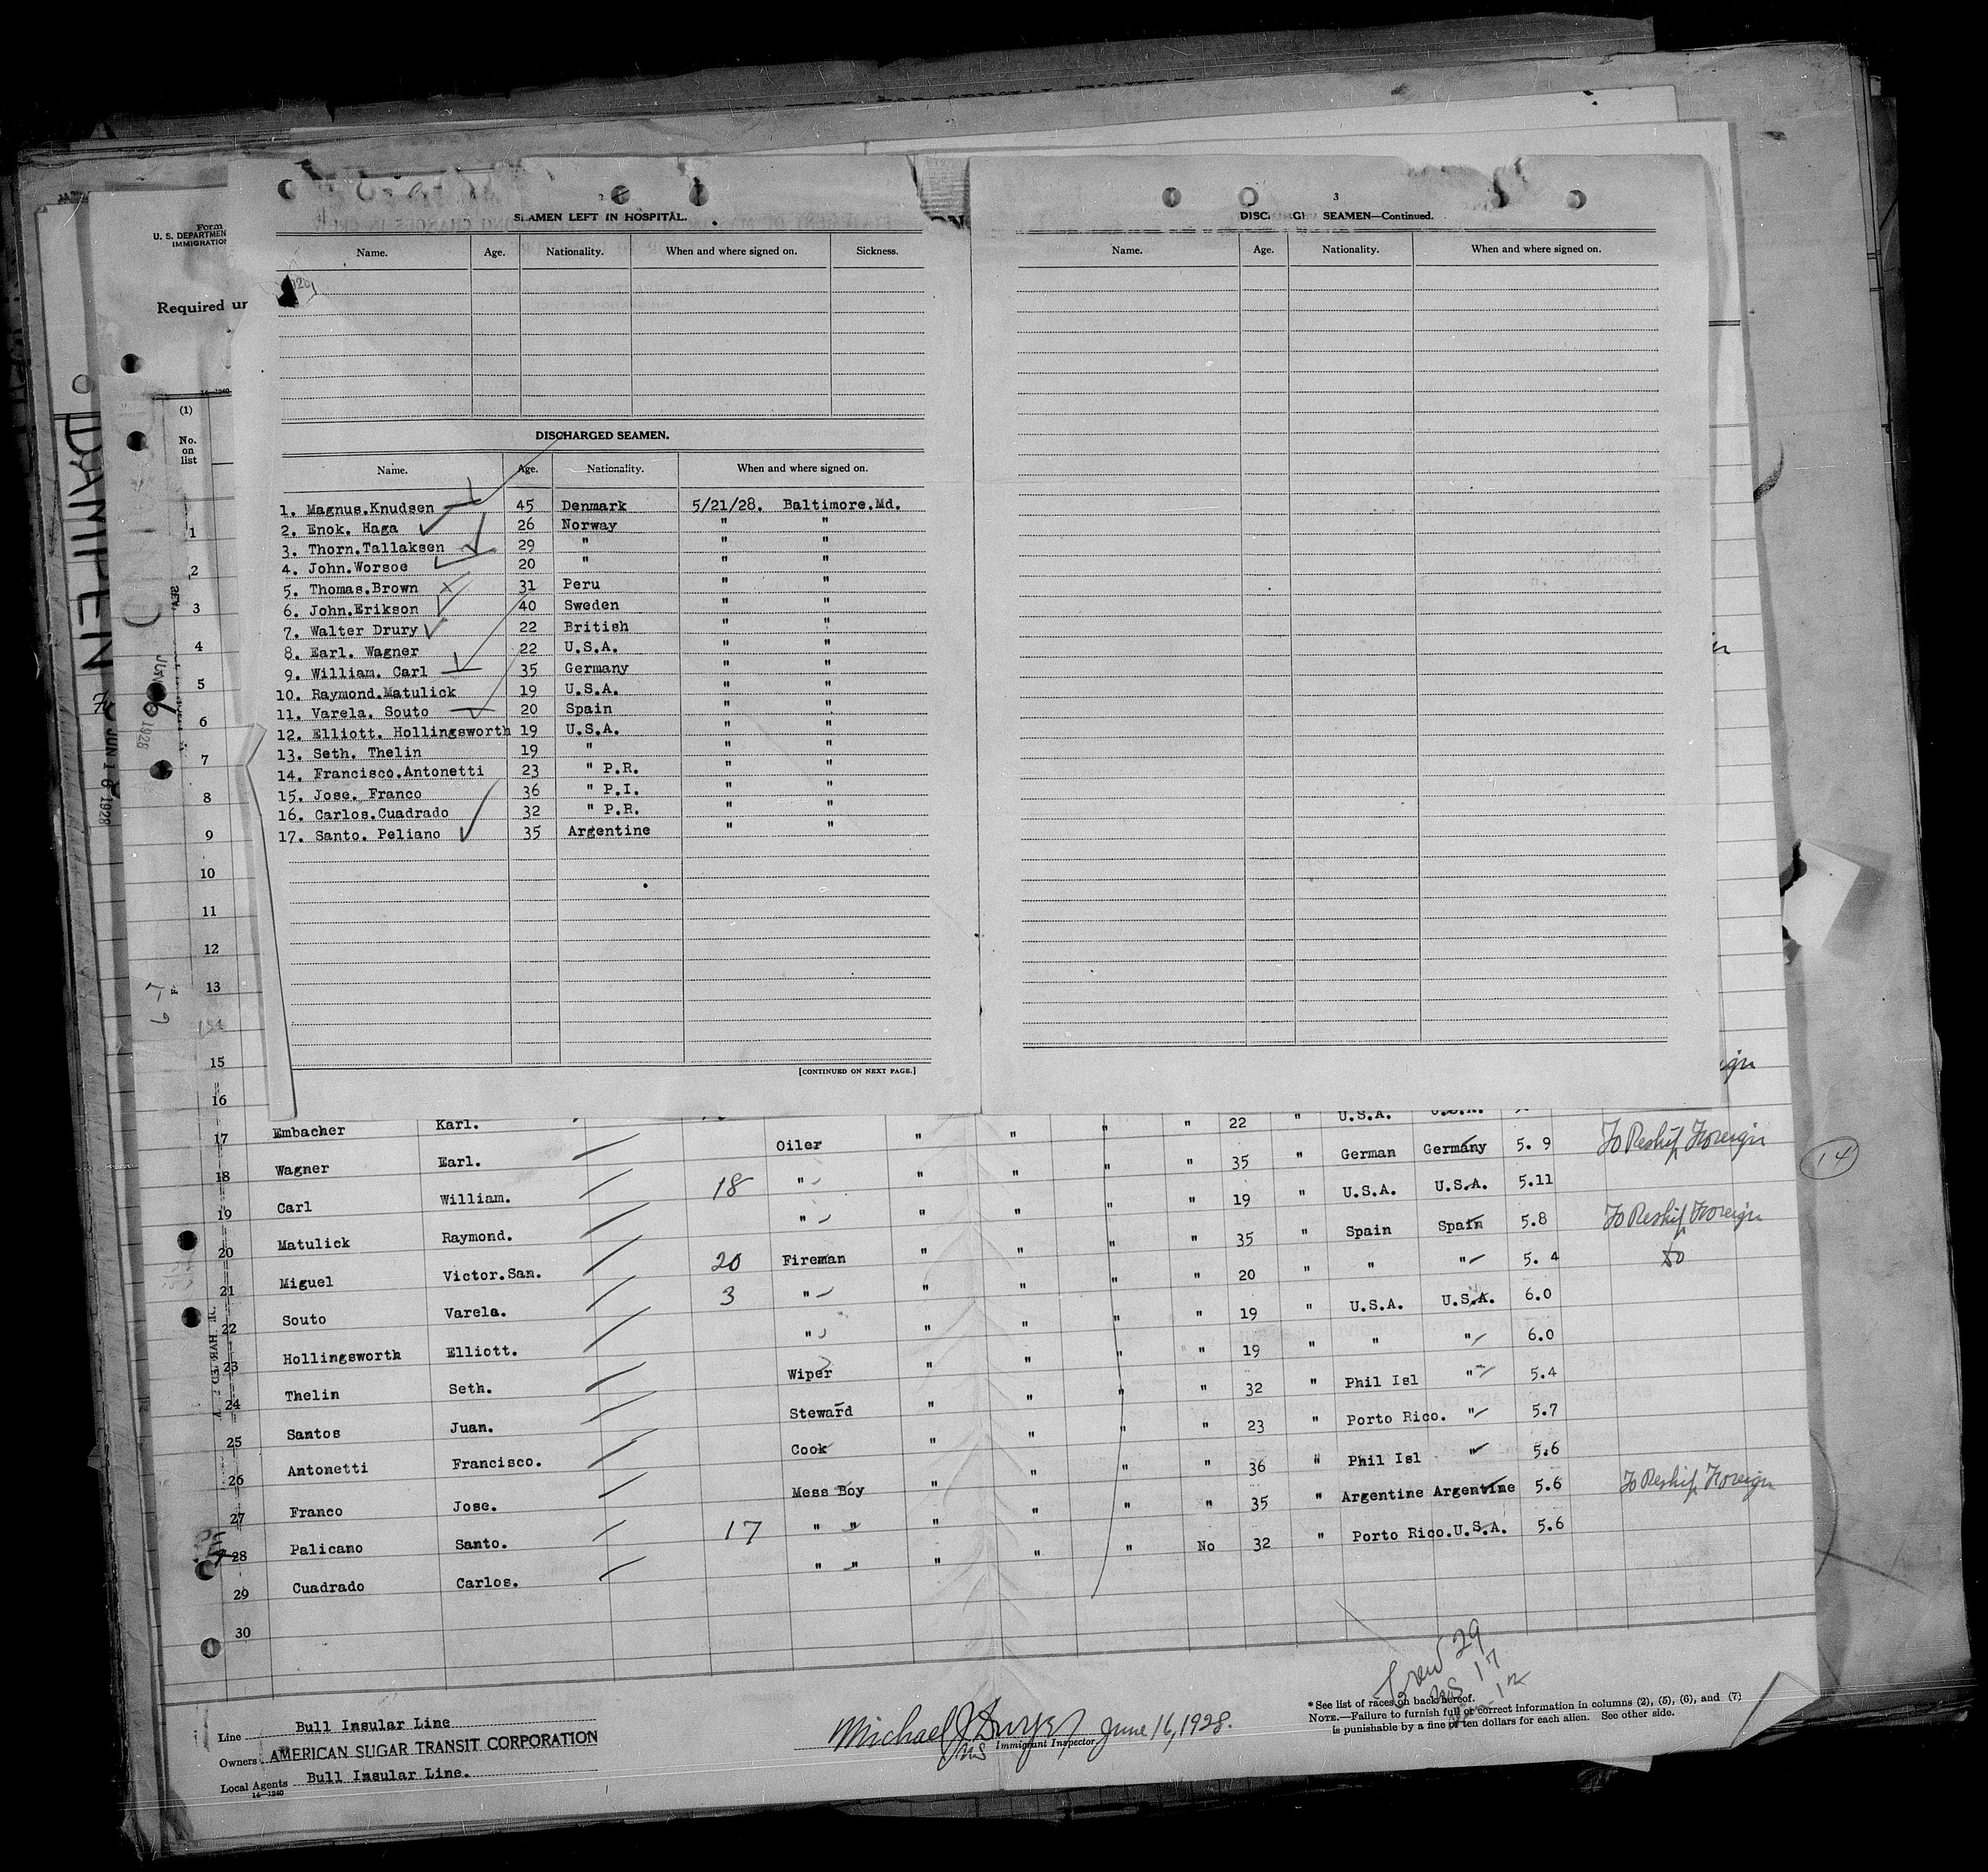 2
SEAMEN LEFT IN HOSPITAL.
Name. Age. Nationality. When and where signed on. Sickness.
DISCHARGED SEAMEN.
Name. Age. Nationality. When and where signed on.
1. Magnus.Knudsen 45 Denmark 5/21/28. Baltimore.Md.
2. Enok. Haga 26 Norway " "
3. Thorn.Tallaksen 29 " " "
4. John.Worsoe 20 " " "
5. Thomas.Brown 31 Peru " "
6. John.Erikson 40 Sweden " "
7. Walter Drury 22 British " "
8. Earl. Wagner 22 U.S.A. " "
9. William. Carl 35 Germany " "
10. Raymond.Matulick 19 U.S.A. " "
11. Varela. Souto 20 Spain " "
12. Elliott. Hollingsworth 19 U.S.A. " "
13. Seth. Thelin 19 " " "
14. Francisco.Antonetti 23 " P.R. " "
15. Jose. Franco 36 " P.I. " "
16. Carlos.Cuadrado 32 " P.R. " "
17. Santo. Peliano 35 Argentine " "
[CONTINUED ON NEXT PAGE.]
3
SEAMEN—Continued.
Name. Age. Nationality. When and where signed on.
Form
U. S. DEPARTMEN
IMMIGRATION
Required un
14—1240
(1)
No.
on
list
DAMPEN
JUN 16 1928
1
2
3
4
5
6
7
8
9
10
11
12
13
15
16
17 Embacher Karl. " " " " 22 " U.S.A. U.S.A.
18 Wagner Earl. Oiler " " " " 35 " German Germany 5. 9 To Reship Foreign
19 Carl William. 18 " " " " " 19 " U.S.A. U.S.A. 5.11
20 Matulick Raymond. " " " " " 35 " Spain Spain 5.8 To Reship Foreign
21 Miguel Victor.San. 20 Fireman " " " " 20 " " " 5. 4 do
22 Souto Varela. 3 " " " " " 19 " U.S.A. U.S.A. 6.0
23 Hollingsworth Elliott. " " " " " 19 " " " 6.0
24 Thelin Seth. Wiper " " " " 32 " Phil Isl " 5.4
25 Santos Juan. Steward " " " " 23 " Porto Rico. " 5.7
26 Antonetti Francisco. Cook " " " " 36 " Phil Isl " 5.6
27 Franco Jose. Mess Boy " " " " 35 " Argentine Argentine 5.6 To Reship Foreign
28 Palicano Santo. 17 " " " " " No 32 " Porto Rico. U.S.A. 5.6
29 Cuadrado Carlos. " " " " "
30
14
Crew 29
17
Line Bull Insular Line
Owners AMERICAN SUGAR TRANSIT CORPORATION
Local Agents Bull Insular Line.
14—1240
Michael J Dwyer June 16, 1928.
Immigrant Inspector
* See list of races on back hereof.
NOTE.—Failure to furnish full or correct information in columns (2), (5), (6), and (7)
is punishable by a fine of ten dollars for each alien. See other side.